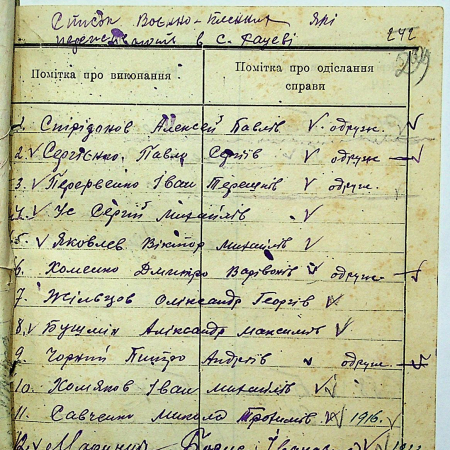 Список Воєнно-пленних які
переживають в с. Фащеві
242
Помітка про виконання
Помітка про одіслання справи
1. Стріданов Алексей Павлів V одруж. V
2. V Сергієнко Павло Сергіїв V одруж. V
3. V Перервенко Іван Терешків V одруж.
4. V Ус Сергій Михайлів V
5. V Яковлев Віктор Михайлів V
6. Хоменко Дмитро V одруж. V
7. Жільцов Олександр Георгів V
8. V Бушмін Александр Максимів V
9. Чорний Пистро Андріїв V одруж. V
10. Хомяков Іван Михайлів V
11. Савченко Микола Трохимів V 1916. V
12. V Борис Іванов V